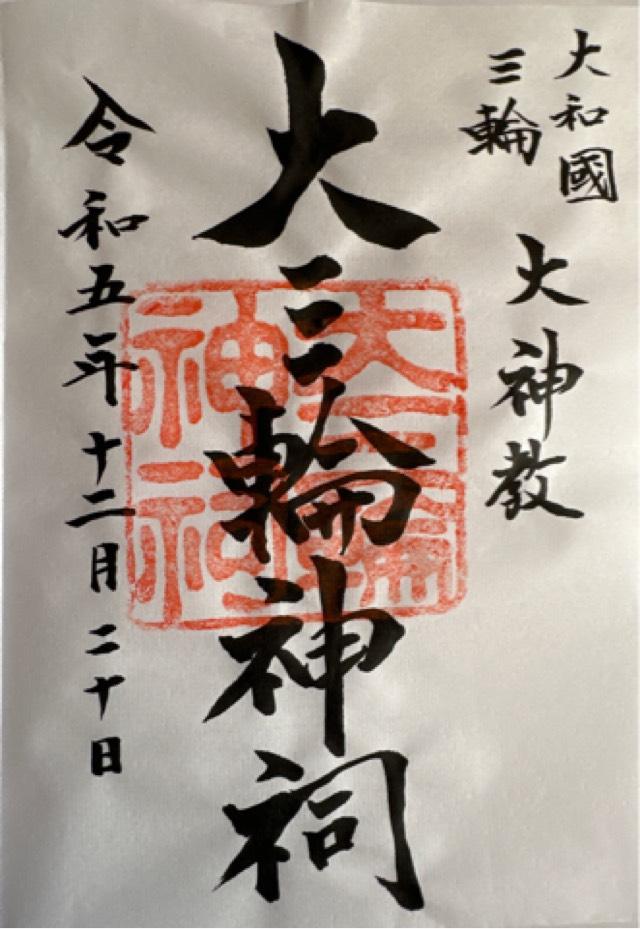 大和國
三輪
大神教
大三輪神祠
大三輪
神祠
令和五年十二月二十日